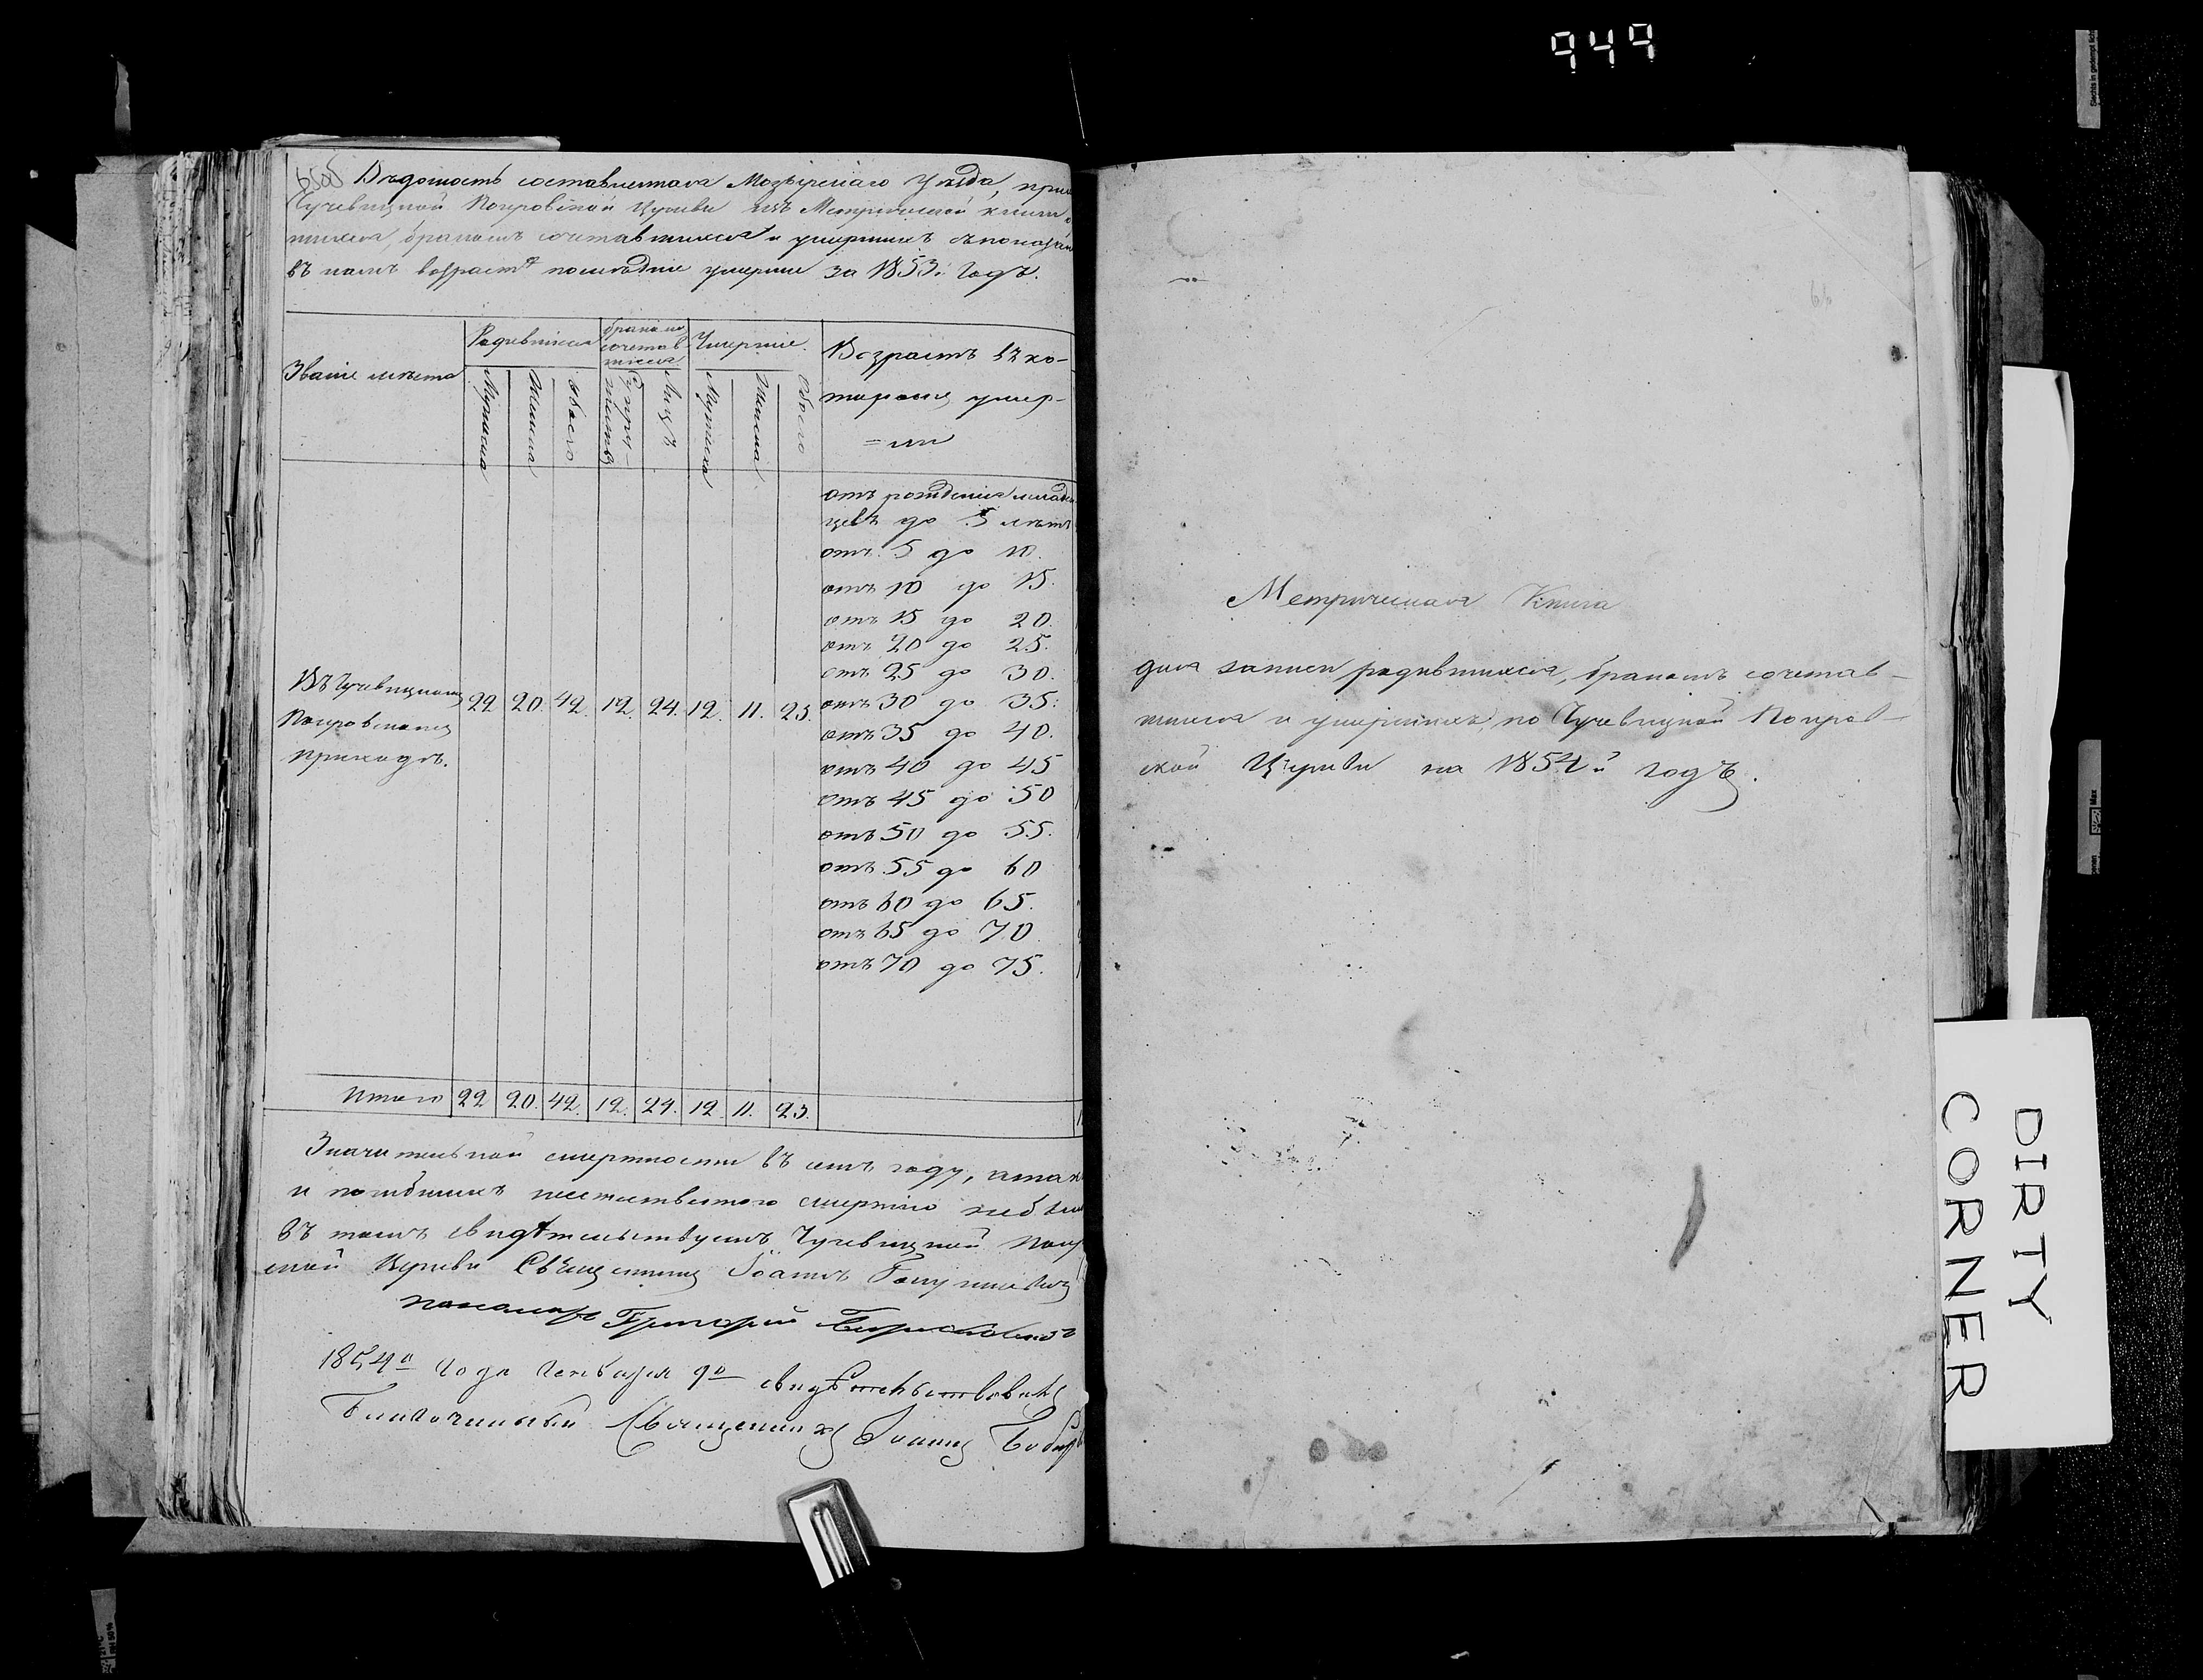 949
Ведомость составленная Мозырскаго Уезда, при
Чучевицкой Покровской Церкви изъ Метрической книги
шихся, бракомъ сочетавшихся и умершихъ съ показан
въ какихъ возрастѣ послѣдніе умерли за 1853й Годъ.
Званіе мѣста
Родившихся
бракомъ сочетавшихся
Умершіе.
Мужеска
Женска
Обоего
Супружествъ
Лицъ
Мужеска
Женска
Обоего
Возрастъ въ ко-
тораго умер-
=ли
отъ рожденія младен
цевъ до 5 лѣтъ
отъ 5 до 10.
отъ 10 до 15.
отъ 15 до 20.
отъ 20 до 25.
отъ 25 до 30.
отъ 30 до 35.
отъ 35 до 40.
отъ 40 до 45
отъ 45 до 50
отъ 50 до 55.
отъ 55 до 60
отъ 60 до 65.
отъ 65 до 70.
отъ 70 до 75.
Въ Чучевицкомъ
Покровскомъ
приходѣ.
22 20. 42. 12. 24. 12. 11. 23.
Итого 22 20. 42. 12. 24. 12. 11. 23.
Значительной смертности въ семъ году, а так
и погибшихъ неестественною смертію небыло
въ томъ свидѣтельствуемъ Чучевицкой Покр
ской Церкви Священникъ Іоаннъ
пономарь Григорій
1854го Года Генваря 9го свидѣтельствовалъ
Благочинный Священникъ Іоаннъ
Метрическая Книга
для записи родившихся, бракомъ сочетав-
шихся и умершихъ, по Чучевицкой Покров-
ской Церкви на 1854й годъ.
DIRTY
CORNER